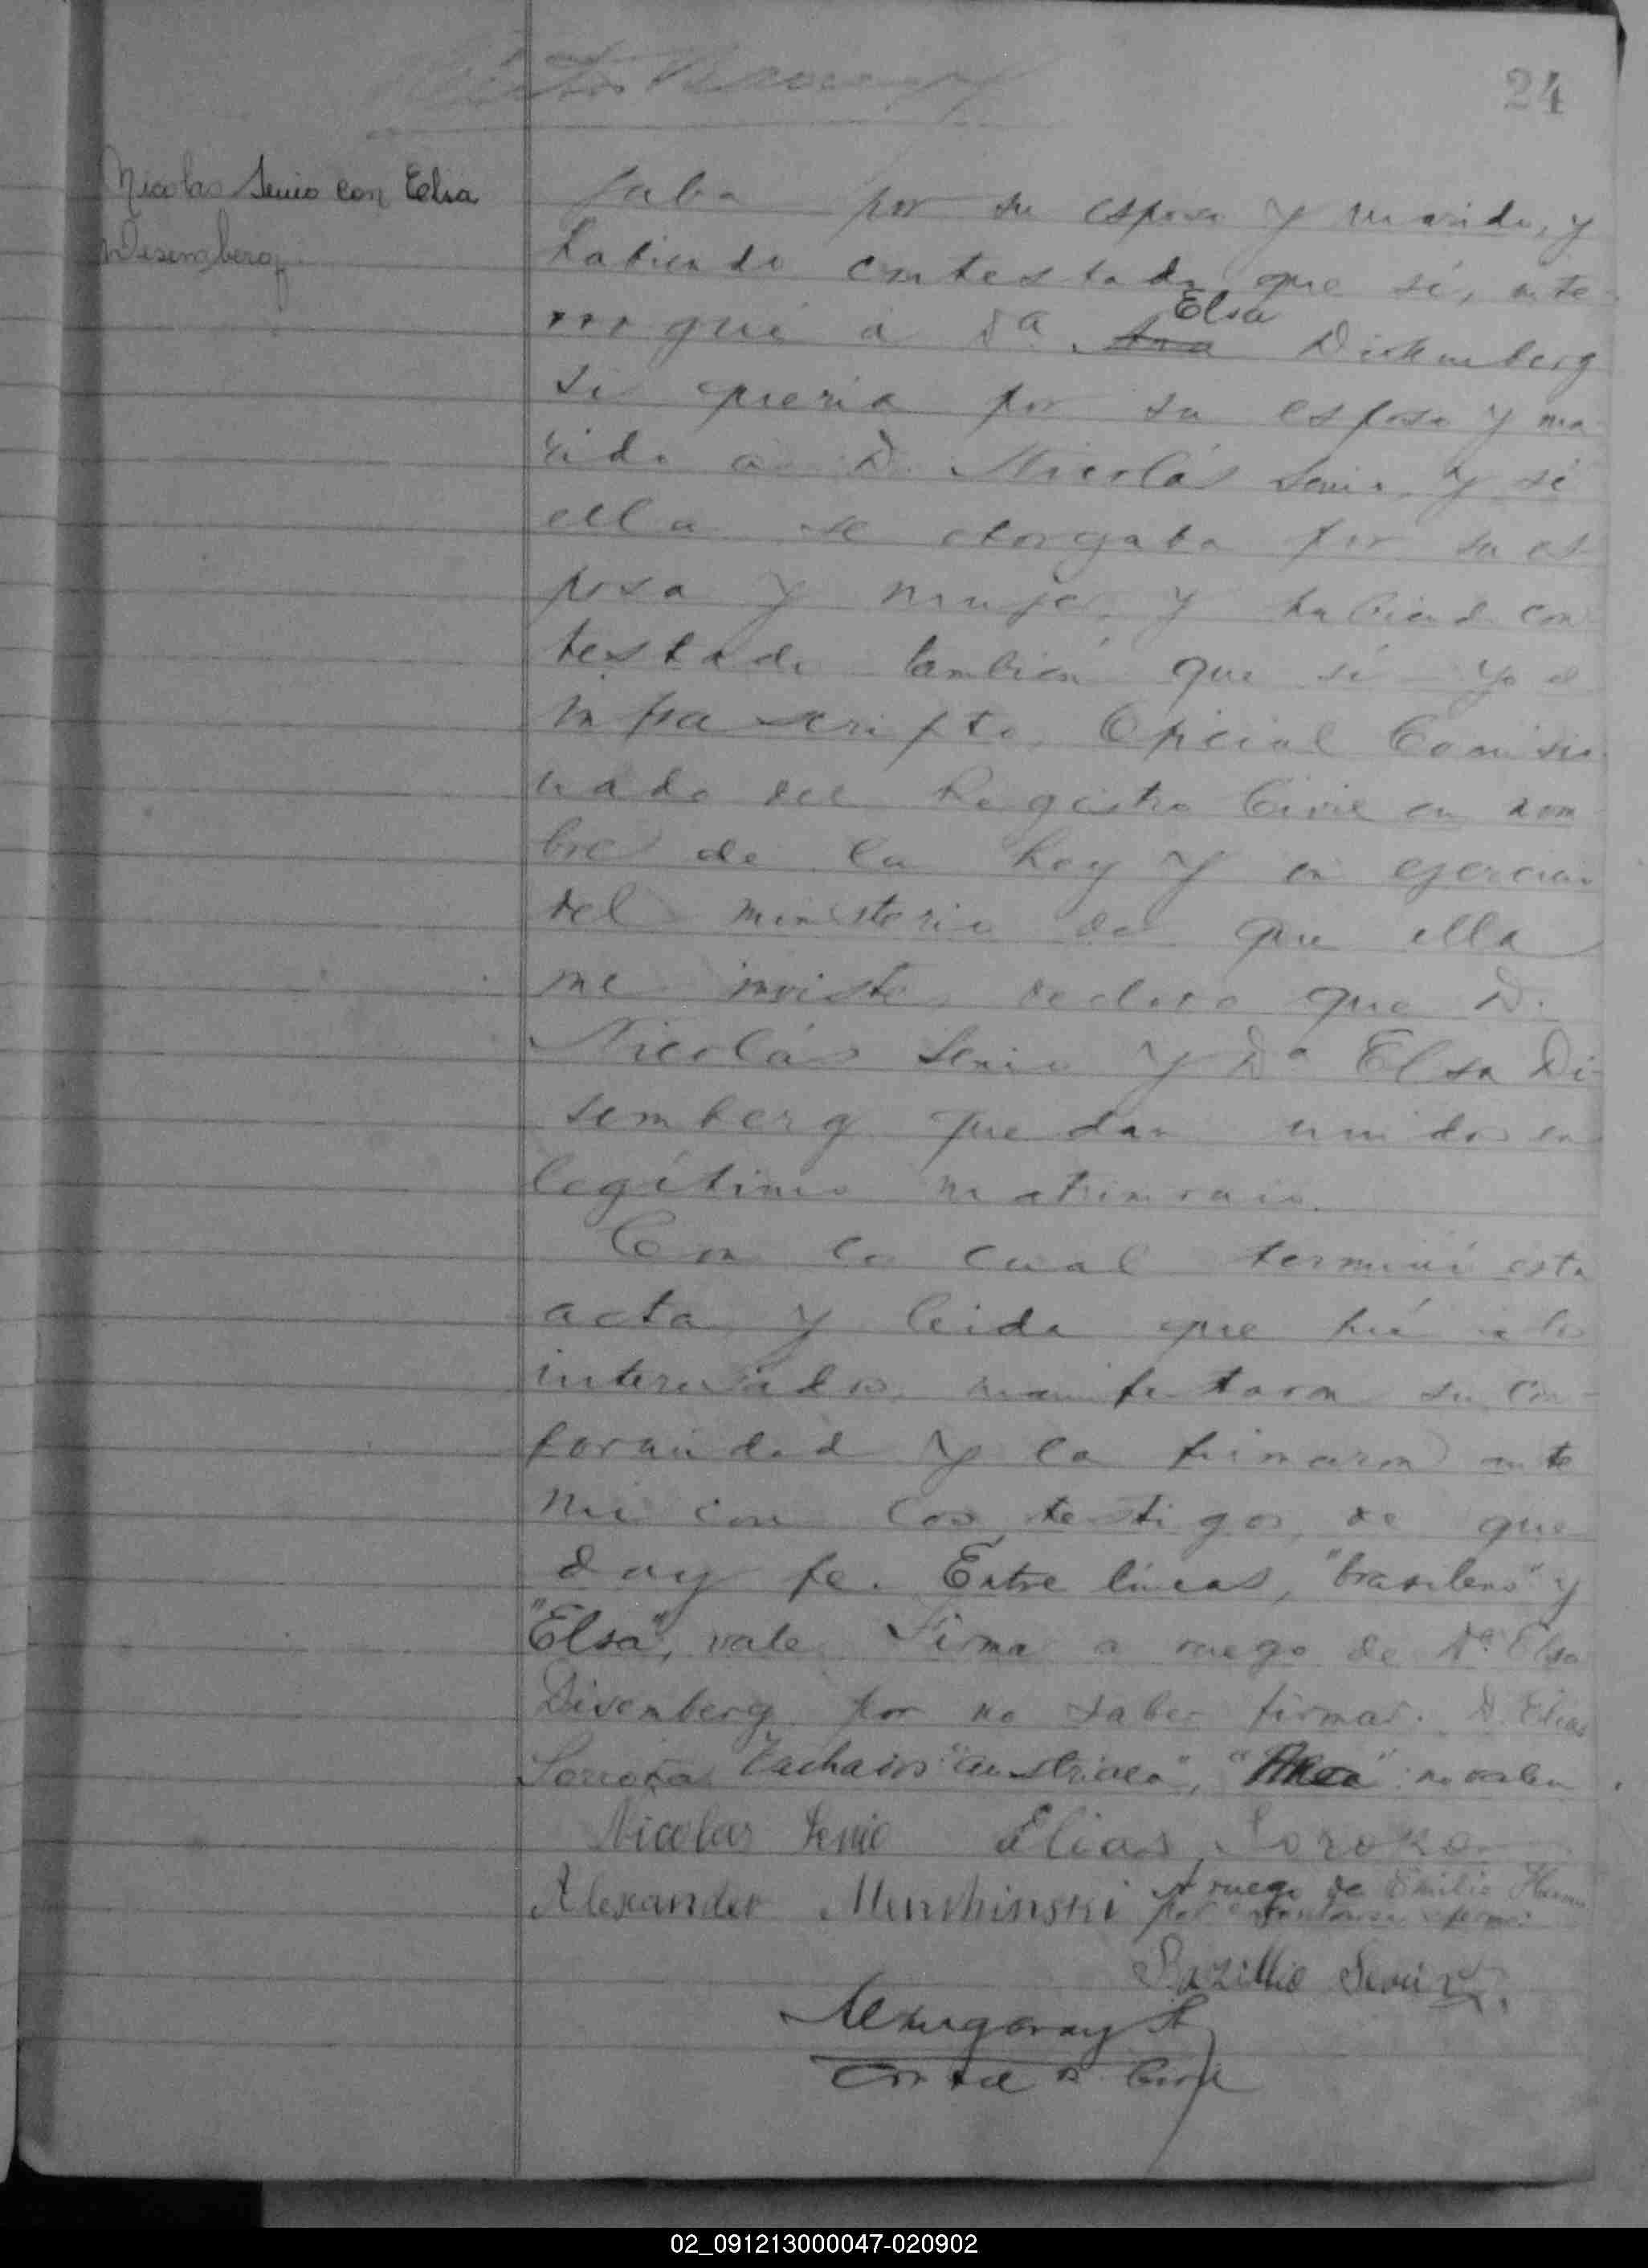 24
Nicolas Senio con Elsa
Disemberg.
gaba por su esposo y marido, y
habiendo contestado que sí, inte-
rrogué á Da. Elsa Disemberg
si queria por su esposo y ma-
rido a D. Nicolás Senio y si
ella se otorgaba por su es-
posa y mujer, y habiendo con-
testado también que sí yo el
infrascripto, Oficial Comisio-
nado del Registro Civil en nom-
bre de la Ley y en ejercicio
del ministerio de que ella
me inviste, declaro que D.
Nicolás Senio y Da. Elsa Di-
semberg quedan unidos en
legítimo matrimonio.
Con lo cual terminé esta
acta y leida que fué a los
interesados manifestaron su con-
formidad y la firmaron ante
mi con los testigos, de que
doy fe. Entre líneas, "brasilero" y
"Elsa", vale. Firma a ruego de Da. Elsa
Disenberg por no saber firmar. D. Elías
Soroka Tachados "austriaca", " " no valen.
Nicolas Senio Elias Soroka
Alexander Menchinski A ruego de Emilio
por firmar
Bazillio Senio